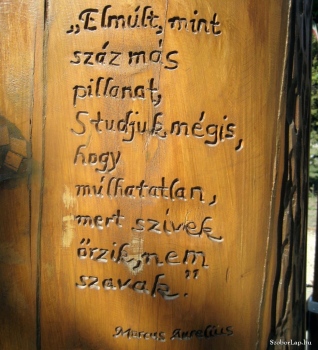 „Elmúlt, mint
száz más
pillanat,
Studjuk mégis,
hogy
múlhatatlan,
mert szívek
őrzik, nem
szavak.”
Marcus Aurelius
SzoborLap.hu